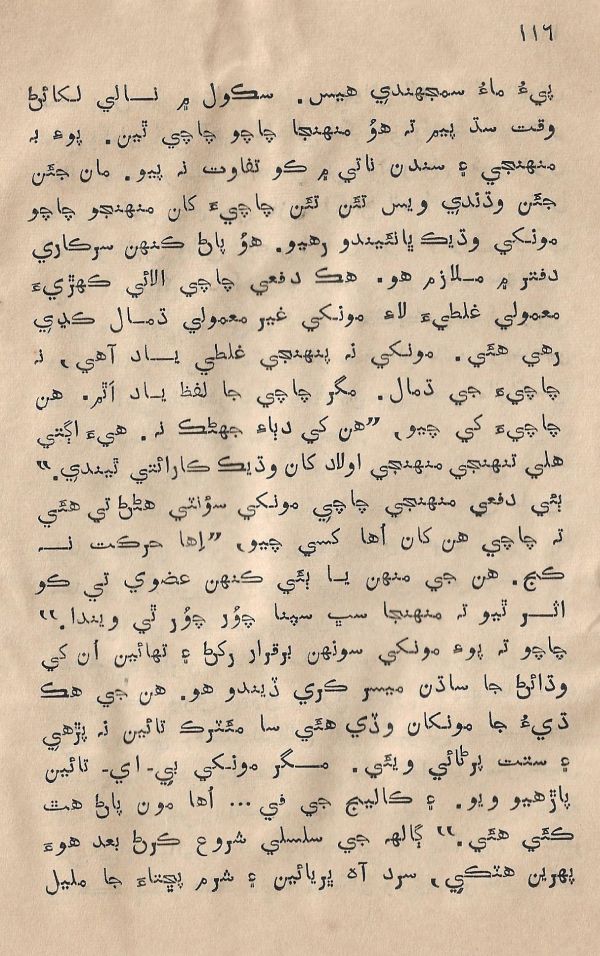 ١١٦
پيءُ ماءُ سمجهندي هيس. سڪول ۾ نالي لکائڻ
وقت سڌ پيم تہ هوُ منهنجا چاچو چاچي ٿين. پوءِ بہ
منهنجي ۽ سندن ناتي ۾ ڪو تفاوت نہ پيو. مان جئن
جئن وڌندي ويس تئن تئن چاچيءَ کان منهنجو چاچو
مونکي وڌيڪ ڀائيندو رهيو. هوُ پاڻ ڪنهن سرڪاري
دفتر ۾ ملازم هو. هڪ دفعي چاچي الائي ڪهڙيءَ
معمولي غلطيءَ لاءِ مونکي غير معمولي ڌمال ڪڍي
رهي هئي. مونکي نہ پنهنجي غلطي ياد آهي، نہ
چاچيءَ جي ڌمال. مگر چاچي جا لفظ ياد اَٿم. هن
چاچيءَ کي چيو، ”هن کي دٻاءِ جهڻڪ نہ. هيءَ اڳتي
هلي تنهنجي منهنجي اولاد کان وڌيڪ ڪارائتي ٿيندي.“
ٻئي دفعي منهنجي چاچي مونکي سؤنٽي هڻڻ تي هئي
تہ چاچي هن کان اُها کسي چيو، ”اِها حرڪت نہ
ڪج. هن جي منهن يا ٻئي ڪنهن عضوي تي ڪو
اثر ٿيو تہ منهنجا سڀ سپنا چوُر چوُر ٿي ويندا.“
چاچو تہ پوءِ مونکي سونهن برقرار رکڻ ۽ تهائين اُن کي
وڌائڻ جا ساڌن ميسر ڪري ڏيندو هو. هن جي هڪ
ڌيءُ جا مونکان وڏي هئي سا مئٽرڪ تائين نہ پڙهي
۽ ستت پرڻائي ويئي. مگر مونکي بي۔ اي۔ تائين
پاڙهيو ويو. ۽ ڪاليج جي في... اُها مون پاڻ هٿ
ڪئي هئي.“ ڳالهہ جي سلسلي شروع ڪرڻ بعد هوءَ
پهرين هٽڪي، سرد آه ڀريائين ۽ شرم پڇتاءَ جا مليل